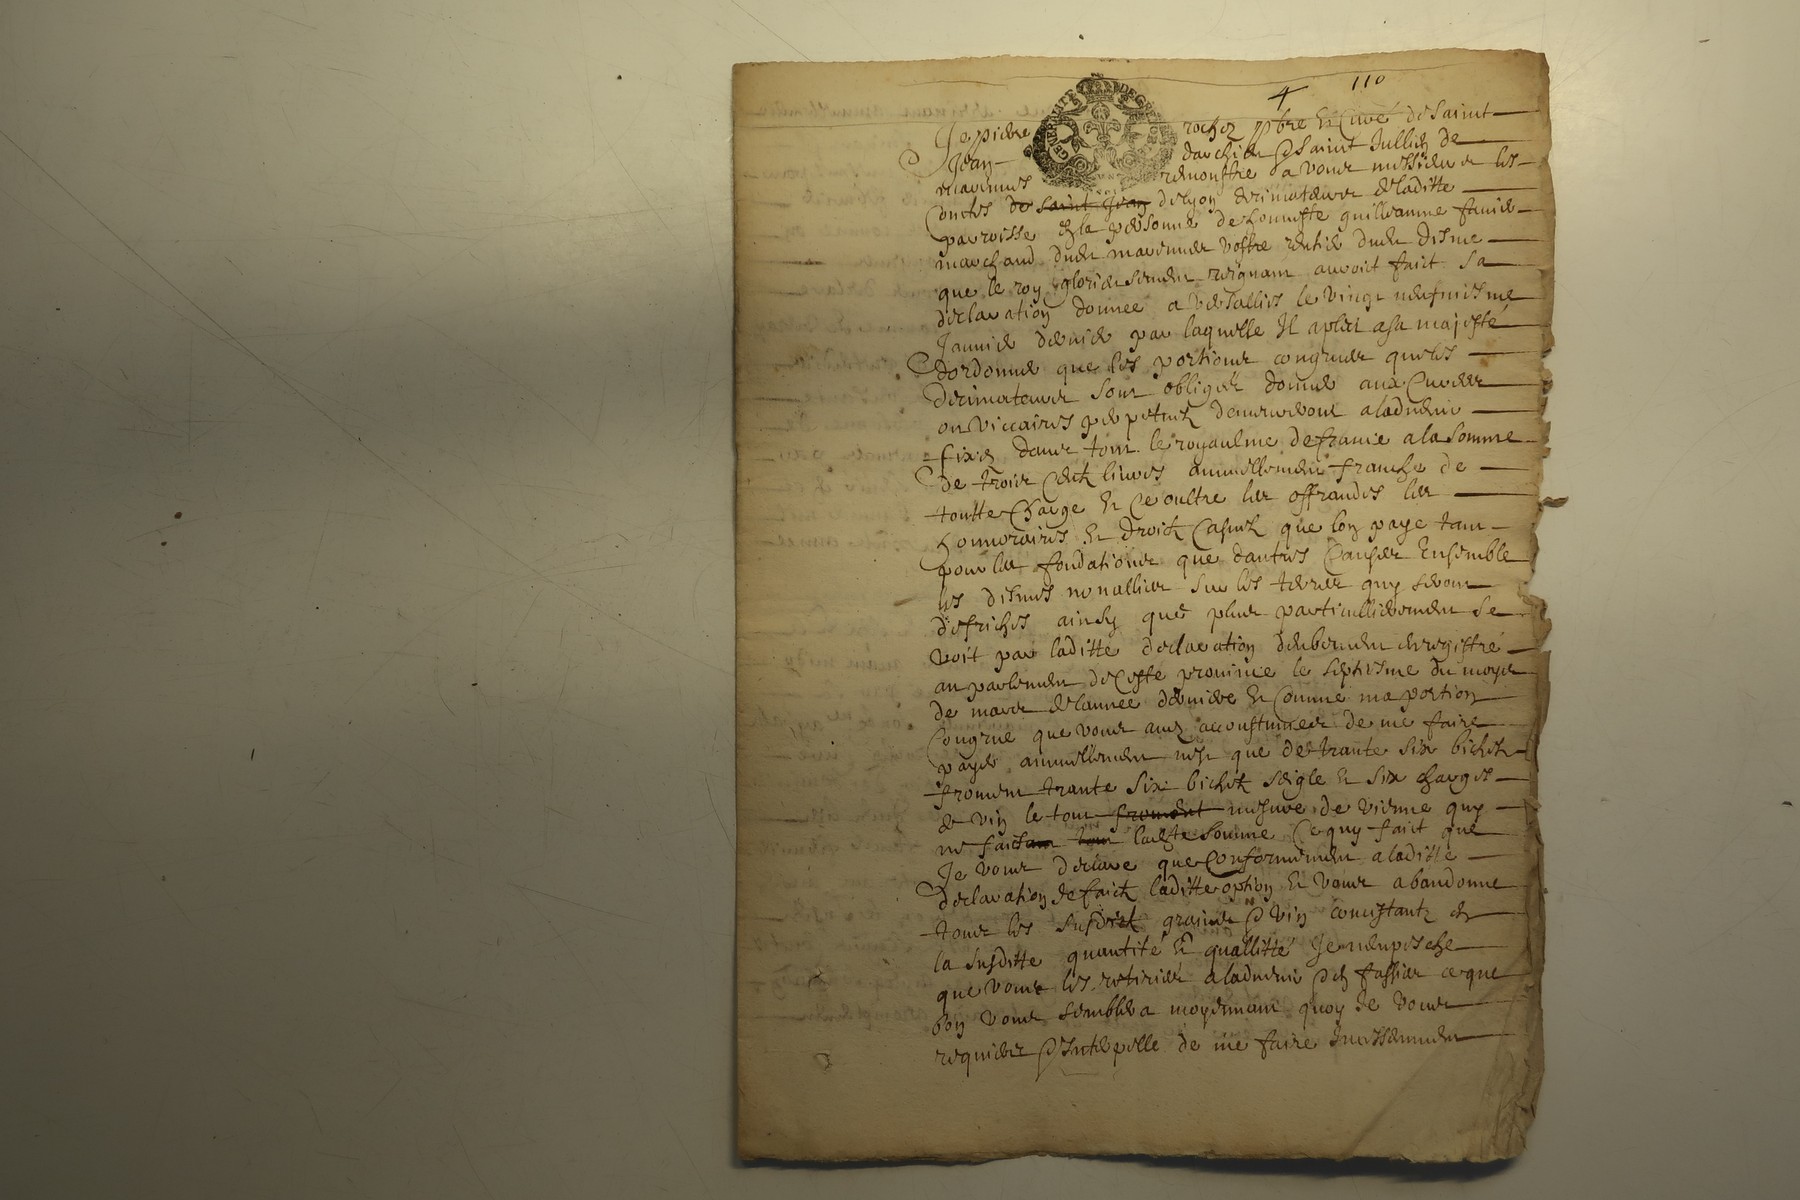 4 110
GENERALITE DE GRENOBLE
Je pierre rochez pbre Et Curé de Saint
Jean darchie & Saint Jullien de
maximes remonstre a vous messieurs les
Contes de saint Jean delyon decimateurs deladitte
parroisse En la personne de honneste guilleaume
marchand dudit vostre rentier dudit disme
que le roy glorieusement reignant auroit faict sa
declaration donnee a versallies le vingt neufviesme
Janvier dernier par laquelle Il a pleu asa majesté
dordonner que les portions congrues que les
decimateurs sont obligés donner aux Curees
ou viccaires perpetuels demeureront aladvenir
fixes dans tout le royaulme defrance a la somme
de trois Cents livres annuellement franche de
toutte Charge Et Ce oultre les offrandes les
honnoraires Et droictz Casuels que lon paye tant
pour les fondations que dautres Causes Ensemble
les dismes novalles sur les terres quy seront
defriches ainsy que plus particullierement se
voit par laditte declaration deubement enregistré
au parlement deCeste province le septiesme du moys
de mars delannee derniere Et Comme ma portion
Congrue que vous avez accoustumee de me faire
payer annuellement nest que de trante six bichets
froment trante six bichets seigle Et six charges
de vin le tout froment mesure de vienne quy
ne faict laditte somme Ce quy faict que
Je vous declare que Conformement a laditte
declaration Je faictz laditte option Et vous abandonne
tous les susdictz grains & vin concistantz En
la susditte quantité Et quallitté Je nempesche
que vous les retiriez aladvenir & En fassiez ce que
bon vous semblera moyennant quoy Je vous
requiers & Interpelle de me faire Incessamment